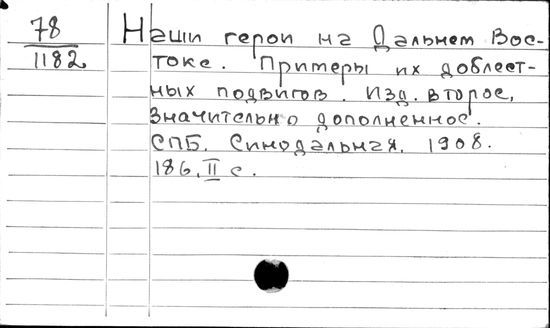 78
1182
Наши герои на Дальнем Вос-
токе. Примеры их доблест-
ных подвигов. Изд. второе,
значительно дополненное.
СПБ. Синодальная. 1908.
186, II с.